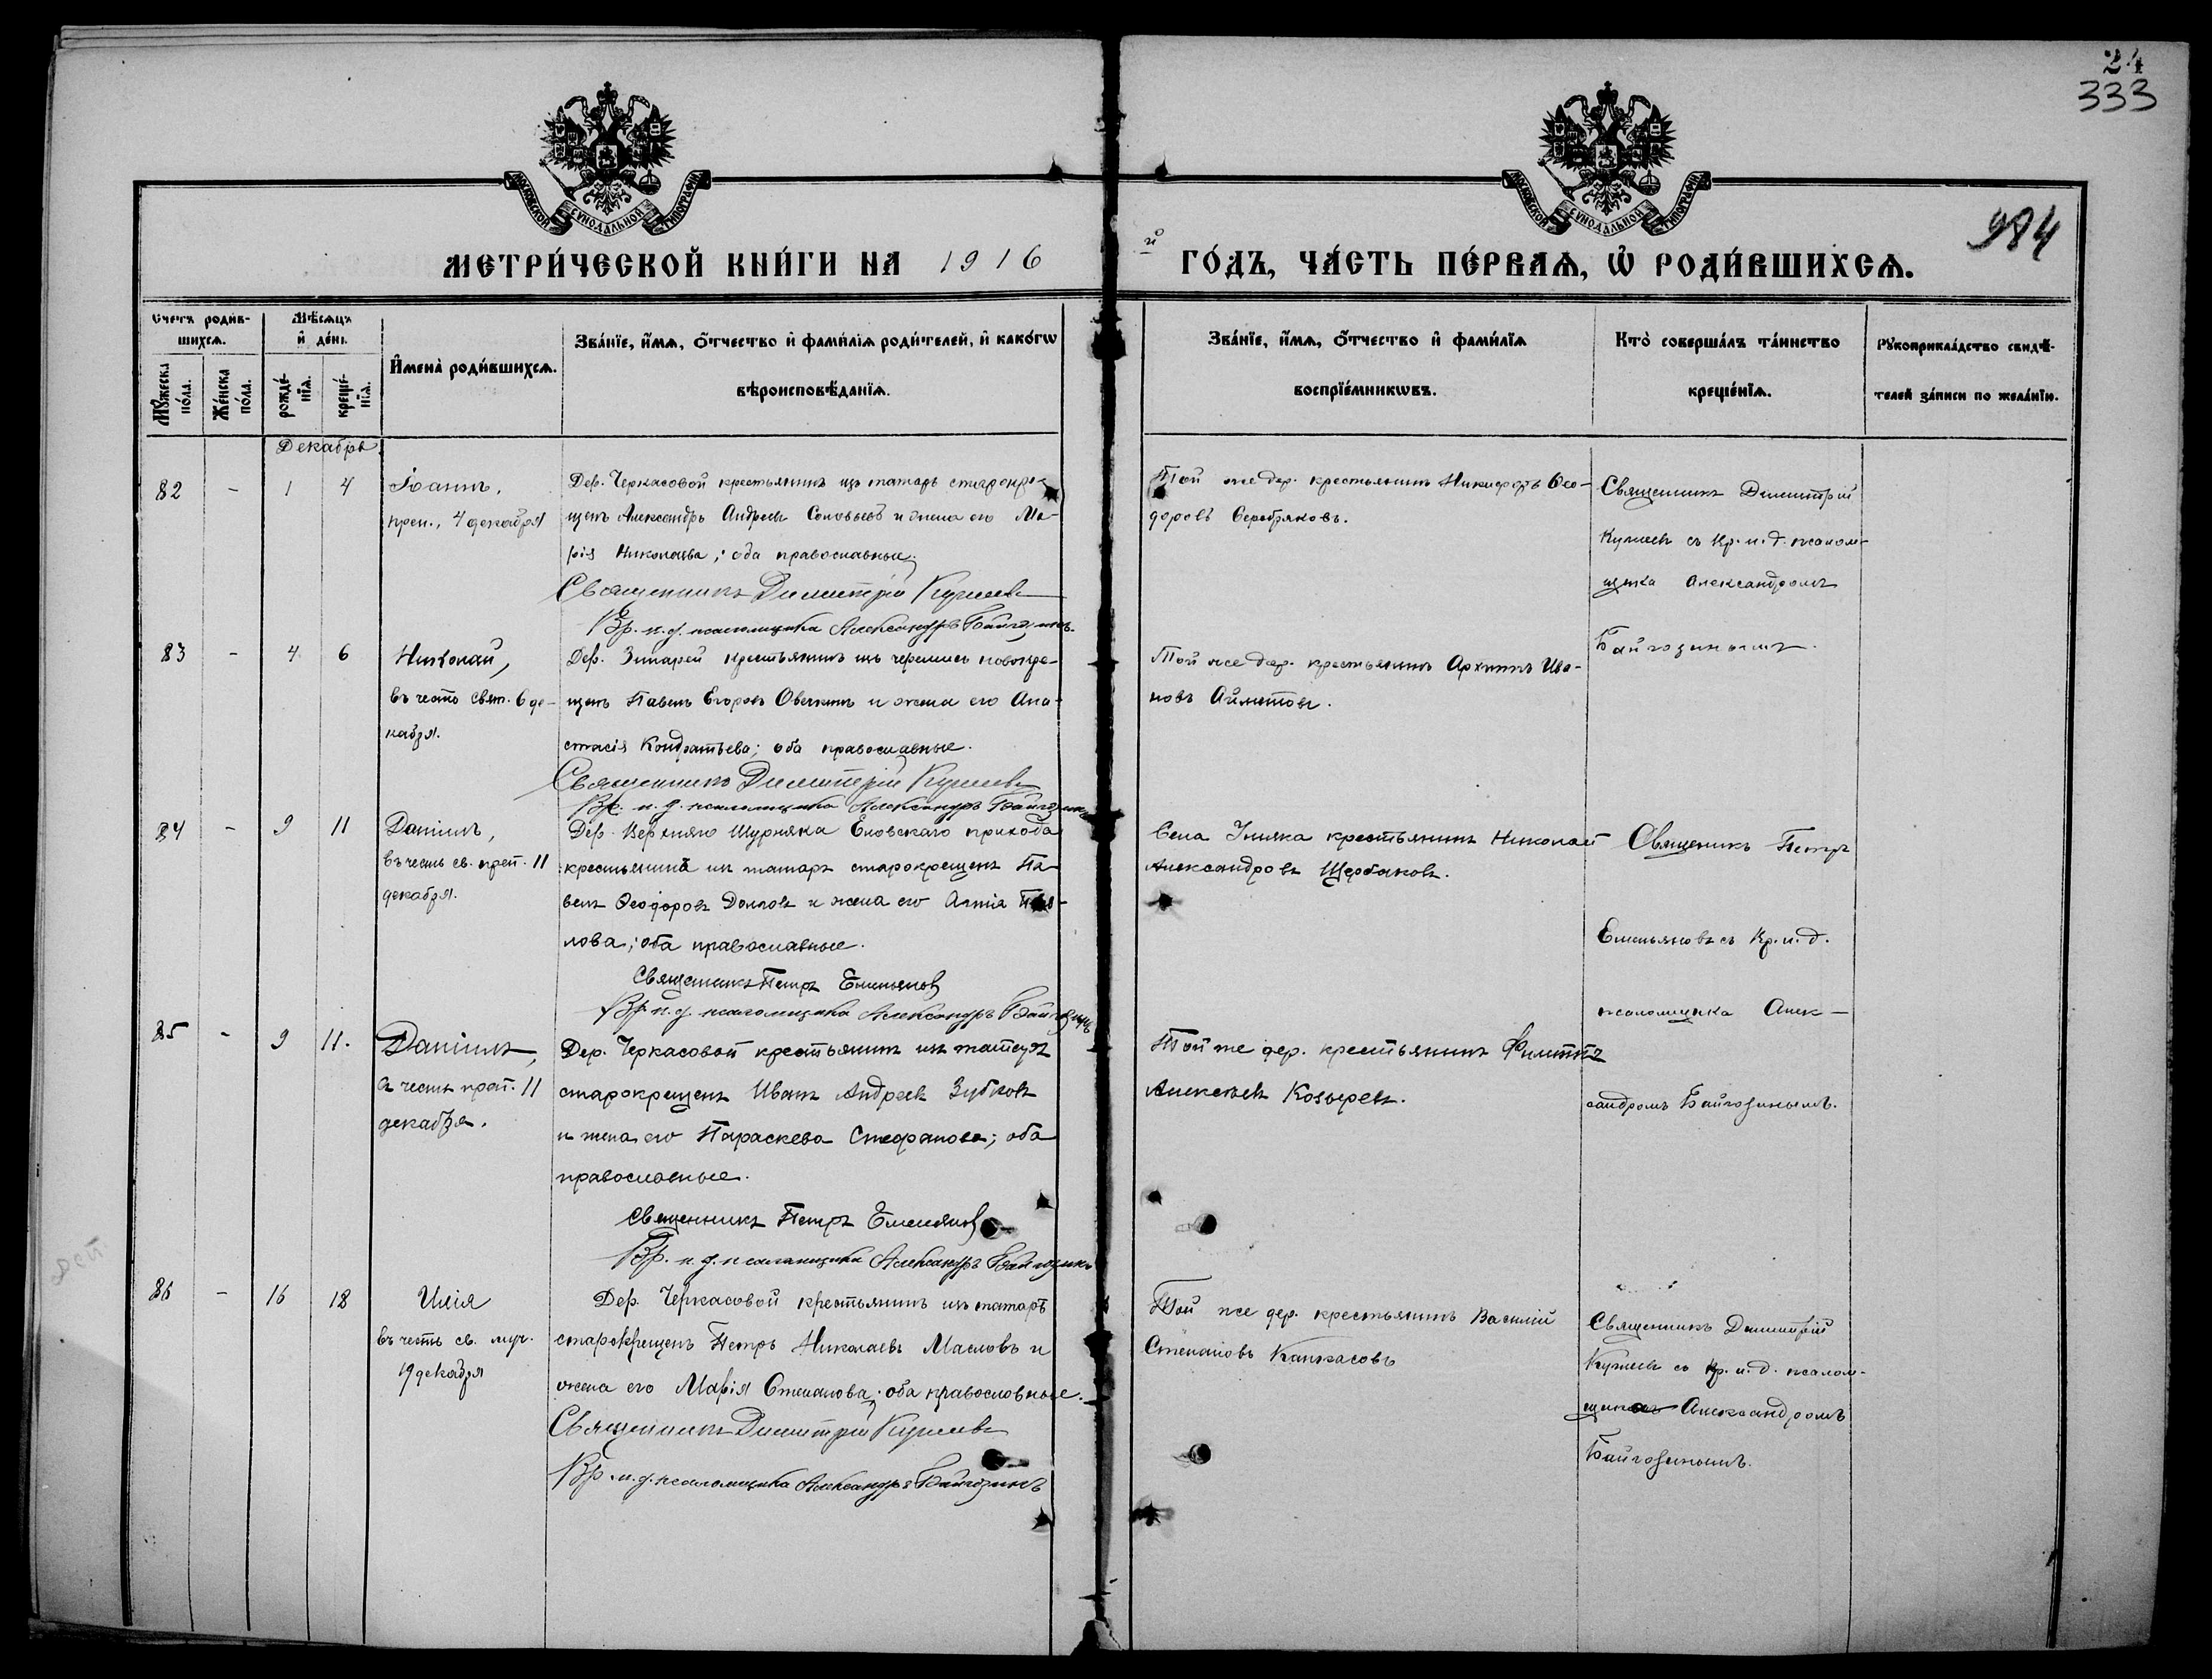 24
333
984
МОСКОВСКОЙ СѴНОДАЛЬНОЙ ТИПОГРАФІИ
МОСКОВСКОЙ СѴНОДАЛЬНОЙ ТИПОГРАФІИ
МЕТРИ́ЧЕСКОЙ КНИ́ГИ НА 1916 й ГО́ДЪ, ЧА́СТЬ ПЕ́РВАѦ, Ѡ҆ РОДИ́ВШИХСѦ.
Счетъ роди́в-
шихсѧ.
Мꙋ́жеска по́ла.
Же́нска по́ла.
Мѣ́сѧцъ
и҆ де́нь.
рожде́-
нїѧ.
креще́-
нїѧ.
И҆мена̀ роди́вшихсѧ.
Зва́нїе, и҆́мѧ, ѻ҆́тчество и҆ фами́лїѧ роди́телей, и҆ како́гѡ
вѣроисповѣ́данїѧ.
Зва́нїе, и҆́мѧ, ѻ҆́тчество и҆ фами́лїѧ
воспрїе́мникѡвъ.
Кто̀ соверша́лъ та́инство
креще́нїѧ.
Рꙋкоприкла́дство свидѣ́-
телей за́писи по жела́нїю.
Декабрь.
82 - 1 4
Іоаннъ,
преп., 4 декабря
Дер. Черкасовой крестьянинъ изъ татаръ старокре-
щенъ Александръ Андреевъ Соловьевъ и жена его Ма-
рія Николаева; оба православные.
Священникъ Димитрій Кузнеевъ
Вр. и. д. псаломщика Александръ Байгозинъ.
Той же дер. крестьянинъ Никифоръ Ѳео-
доровъ Серебряковъ.
Священникъ Димитрій
съ Вр. и. д. псалом-
щика Александромъ
Байгозинымъ.
83 - 4 6
Николай,
въ честь свят. 6 де-
кабря.
Дер. крестьянинъ изъ черемисъ новокре-
щенъ Павелъ Егоровъ Овечкинъ и жена его Ана-
стасія Кондратьева; оба православные.
Священникъ Димитрій
Вр. и. д. псаломщика Александръ Байгозинъ
Той же дер. крестьянинъ Архипъ Ива-
новъ Айметовъ.
84 - 9 11
Даніилъ,
въ честь св. преп. 11
декабря.
Дер. Верхняго Шурняка Еловскаго прихода
крестьянинъ изъ татаръ старокрещенъ Па-
велъ Ѳеодоровъ Долговъ и жена его Анна Пав-
лова; оба православные.
Священникъ Петръ Емельяновъ
Вр. и. д. псаломщика Александръ Байгозинъ
Села Ильяка крестьянинъ Николай
Александровъ Щербаковъ.
Священникъ Петръ
Емельяновъ съ Вр. и. д.
псаломщика Алек-
сандромъ Байгозинымъ.
85 - 9 11.
Даніилъ,
въ честь преп. 11
декабря.
Дер. Черкасовой крестьянинъ изъ татаръ
старокрещенъ Иванъ Андреевъ Зубковъ
и жена его Параскева Стефанова; оба
православные.
Священникъ Петръ Емельяновъ
Вр. и. д. псаломщика Александръ Байгозинъ
Той же дер. крестьянинъ Филиппъ
Алексѣевъ Козыревъ.
86 - 16 18
Илія
въ честь св. муч.
19 декабря
Дер. Черкасовой крестьянинъ изъ татаръ
старокрещенъ Петръ Николаевъ Масловъ и
жена его Марія Степанова; оба православные.
Священникъ Димитрій
Вр. и. д. псаломщика Александръ Байгозинъ
Той же дер. крестьянинъ Василій
Степановъ
Священникъ Димитрій
съ Вр. и. д. псалом-
щика Александромъ
Байгозинымъ.